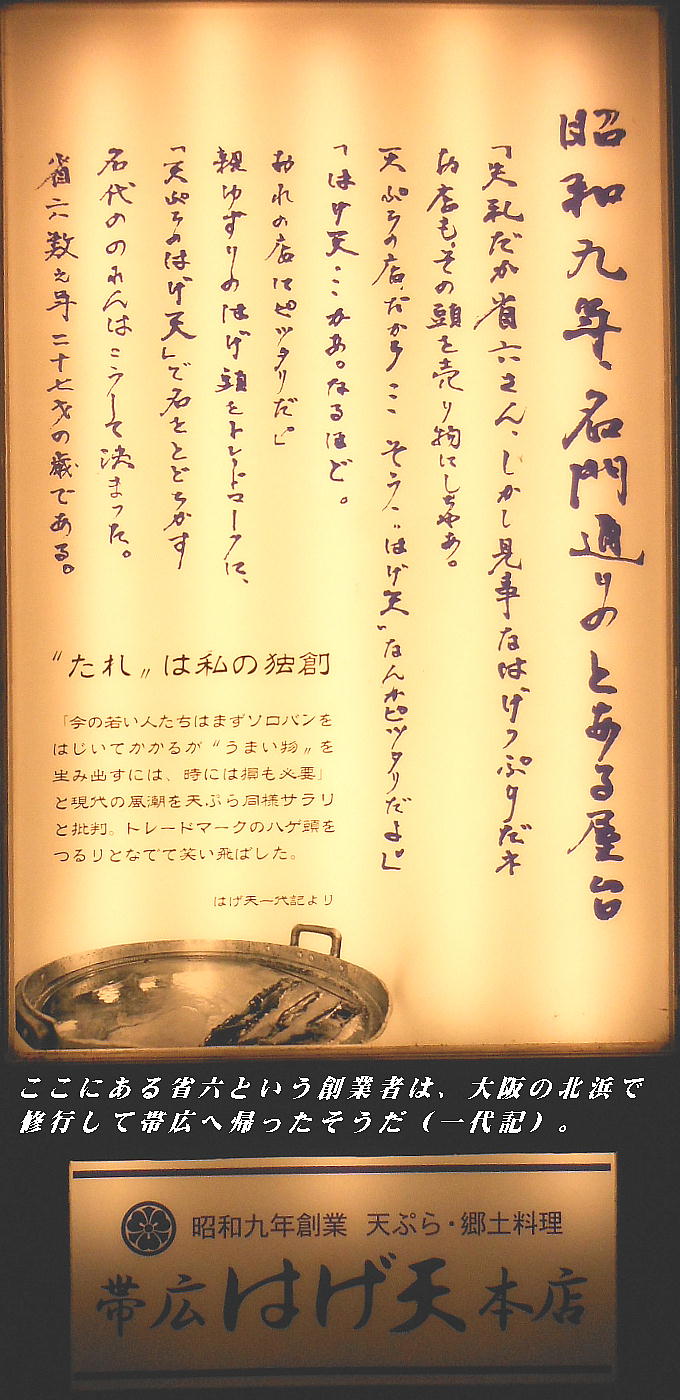 昭和九年、名門通りのとある屋台
「失礼だが省六さん、しかし見事なはげっぷりだネ
お店も、その頭を売り物にしちゃあ。
天ぷらの店、だから…そう、〝はげ天〟なんかピッタリだよ。」
「はげ天…かあ。なるほど。
おれの店にピッタリだ。」
親ゆずりのはげ頭をトレードマークに、
「天ぷらのはげ天」で名をとどろかす
名代ののれんはこうして決まった。
省六数え年二十七才の歳である。
〝たれ〟は私の独創
「今の若い人たちはまずソロバンを
はじいてかかるが〝うまい物〟を
生み出すには、時には損も必要」
と現代の風潮を天ぷら同様サラリ
と批判。トレードマークのハゲ頭を
つるりとなでて笑い飛ばした。
はげ天一代記より
ここにある省六という創業者は、大阪の北浜で
修行して帯広へ帰ったそうだ（一代記）。
昭和九年創業 天ぷら・郷土料理
帯広はげ天本店